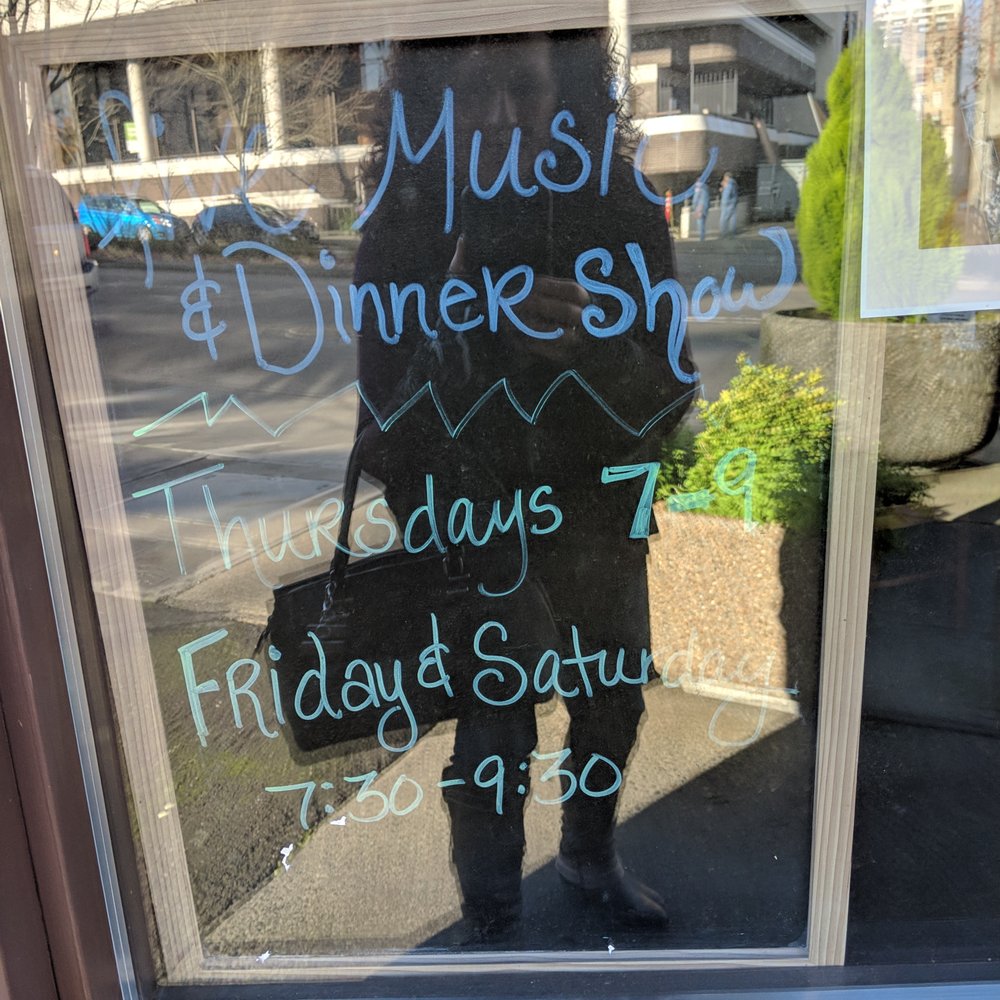 Live Music
& Dinner Show
Thursdays 7-9
Friday & Saturday
7:30-9:30